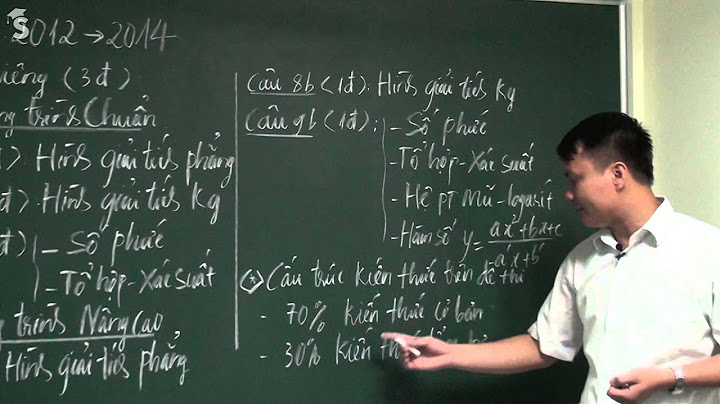 S
2012 → 2014
iêng (3đ)
trình Chuẩn
Hình giải tiếs phẳng
Hình giải tiếs Kg
- Số phức
- Tổ hợp - Xác suất
trình Nâng Cao
Hình giải tiếs phẳng
Câu 8b (1đ): Hình giải tiếs Kg
Câu 9b (1đ):
- Số phức
- Tổ hợp - Xác suất
- Hệ PT Mũ - logarit
- Hàm số y = (ax² + bx + c)/(a'x + b')
(*) Cấu trúc kiến thức trên đề thi
- 70% kiến thức cơ bản
- 30% kiến